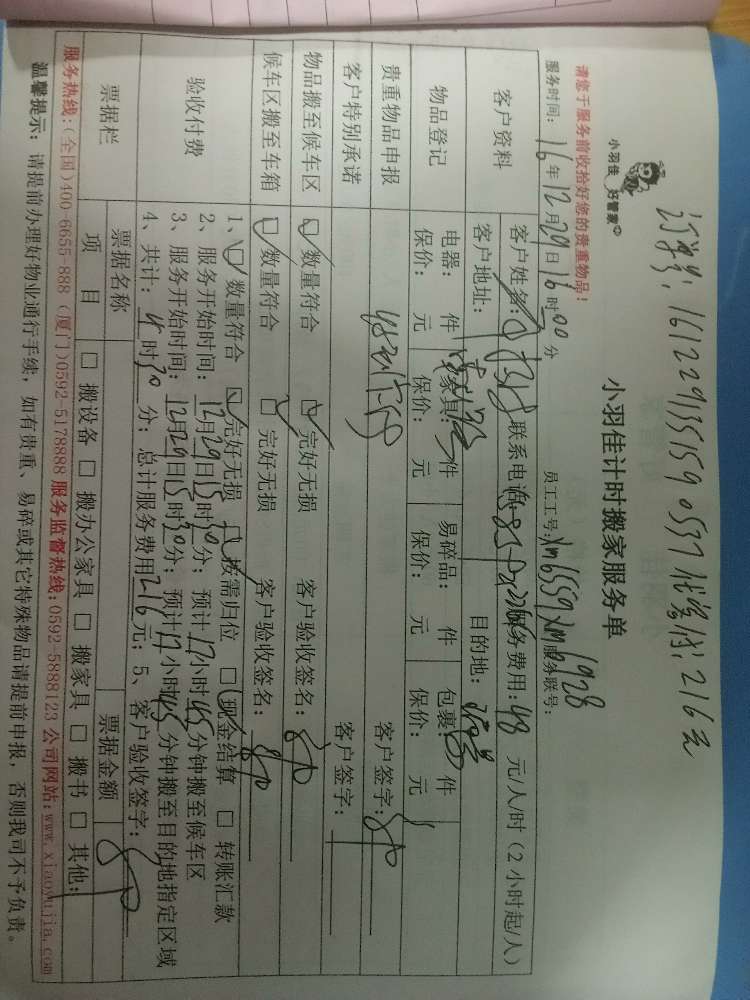 订单号：161229135159 0537 代签付：216元
小羽佳 好管家
小羽佳计时搬家服务单
请您于服务前收拾好您的贵重物品！
服务时间：16年12月29日16时00分 员工工号：xm6559 xm61928 服务联号：
客户资料 客户姓名： 联系电话： 服务费用：48 元/人/时（2小时起/人）
客户地址： 目的地：
物品登记 电器： 件 家具： 件 易碎品： 件 包裹： 件
保价： 元 保价： 元 保价： 元 保价： 元
贵重物品申报 客户签字：
客户特别承诺 客户签字：
物品搬至候车区 数量符合 完好无损 客户验收签名：
候车区搬至车箱 数量符合 完好无损 客户验收签名：
验收付费 1、 数量符合 完好无损 按需归位 现金结算 转账汇款
2、服务开始时间：12月29日15时30分；预计17小时45分钟搬至候车区
3、服务开始时间：12月29日15时30分；预计17小时45分钟搬至目的地指定区域
4、共计： 时30分；总计服务费用216元；5、客户验收签字：
票据栏 票据名称 票据金额
项 目 搬设备 搬办公家具 搬家具 搬书 其他：
服务热线：(全国)400-6655-888 (厦门)0592-5178888 服务监督热线：0592-5888123 公司网站：www.xiaoyujia.com
温馨提示：请提前办理好物业通行手续，如有贵重、易碎或其它特殊物品请提前申报，否则我司不予负责。